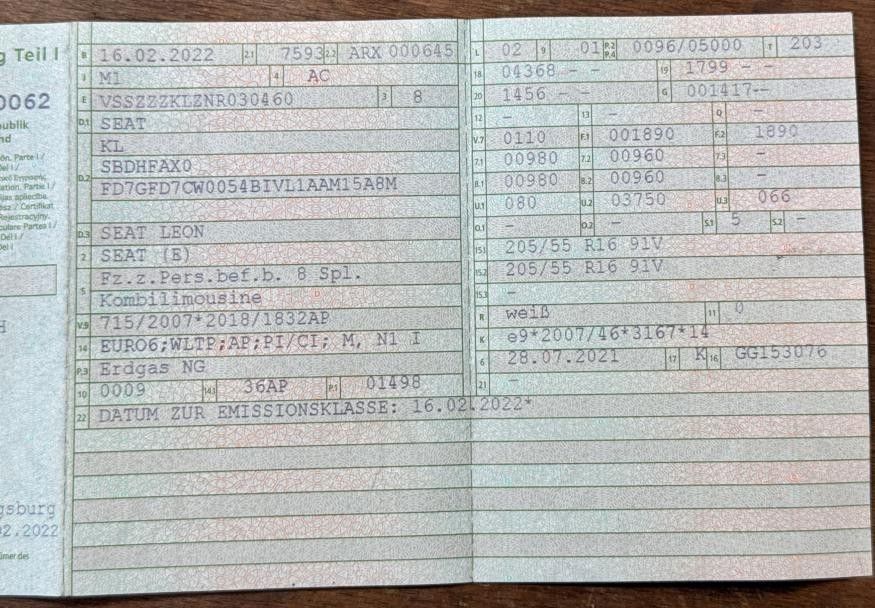 g Teil I
0062
publik
nd
Parte I /
Partie I /
Certifikat
Rejestracyjny.
Parte I /
Del I /
Del I
gsburg
02.2022
B 16.02.2022 2.1 7593 2.2 ARX 000645
J M1 4 AC
E VSSZZZKLZNR030460 3 8
D.1 SEAT
KL
D.2 SBDHFAX0
FD7GFD7CW0054BIVL1AAM15A8M
D.3 SEAT LEON
2 SEAT (E)
5 Fz.z.Pers.bef.b. 8 Spl.
Kombilimousine
V.9 715/2007*2018/1832AP
14 EURO6;WLTP;AP;PI/CI; M, N1 I
P.3 Erdgas NG
10 0009 14.1 36AP P.1 01498
22 DATUM ZUR EMISSIONSKLASSE: 16.02.2022*
L 02 9 01 P.2 P.4 0096/05000 T 203
18 04368 - - 19 1799 - -
20 1456 - - G 001417--
12 - 13 - Q -
V.7 0110 F.1 001890 F.2 1890
7.1 00980 7.2 00960 7.3 -
8.1 00980 8.2 00960 8.3 -
U.1 080 U.2 03750 U.3 066
O.1 - O.2 - S.1 5 S.2 -
15.1 205/55 R16 91V
15.2 205/55 R16 91V
15.3 -
R weiß 11 0
K e9*2007/46*3167*14
6 28.07.2021 17 K 16 GG153076
21 -